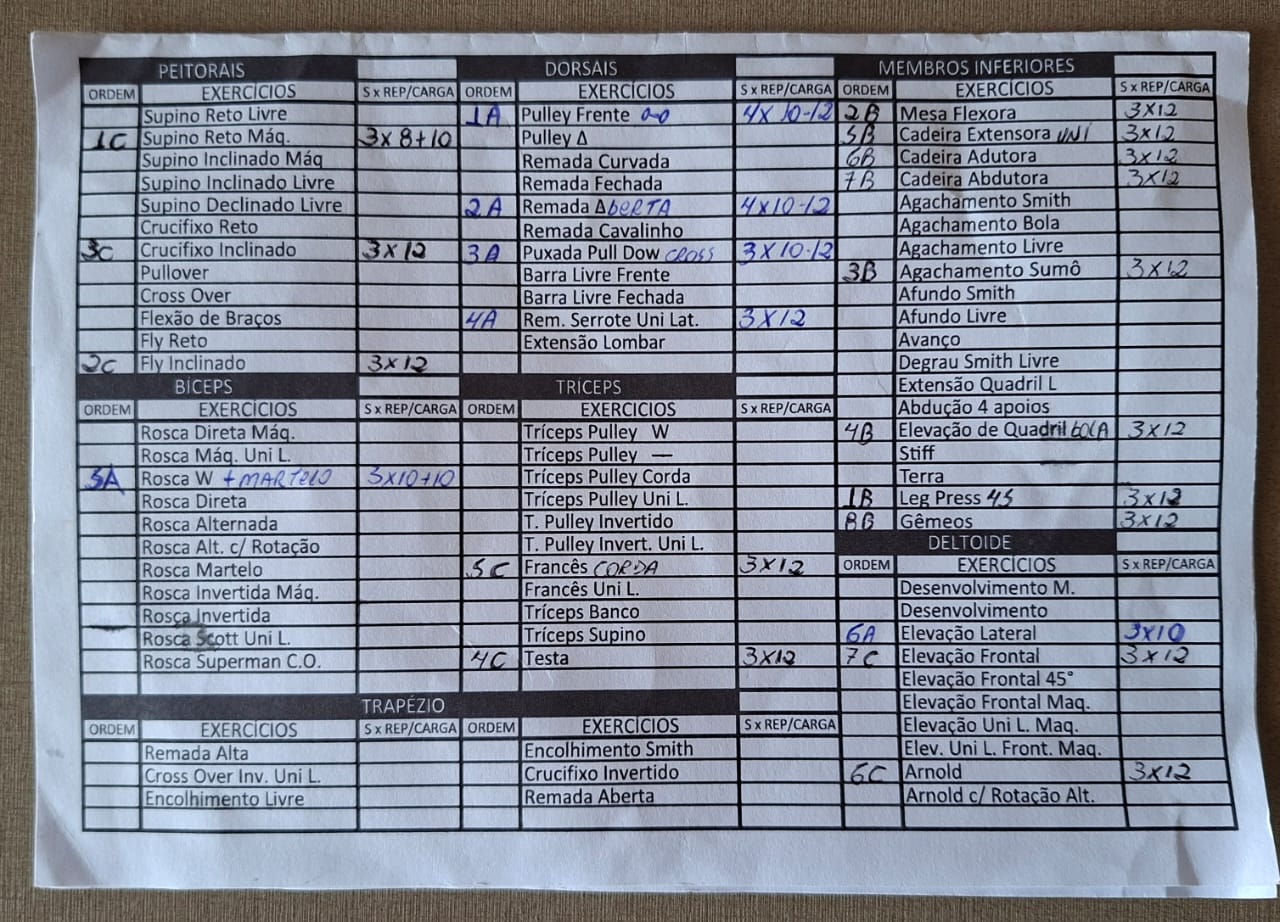 PEITORAIS DORSAIS MEMBROS INFERIORES
ORDEM EXERCÍCIOS S x REP/CARGA ORDEM EXERCÍCIOS S x REP/CARGA ORDEM EXERCÍCIOS S x REP/CARGA
Supino Reto Livre 1A Pulley Frente 4X 10-12 2B Mesa Flexora 3X12
1C Supino Reto Máq. 3X8+10 Pulley Δ 5B Cadeira Extensora UNI 3X12
Supino Inclinado Máq Remada Curvada 6B Cadeira Adutora 3X12
Supino Inclinado Livre Remada Fechada 7B Cadeira Abdutora 3X12
Supino Declinado Livre 2A Remada ΔbERTA 4X10-12 Agachamento Smith
Crucifixo Reto Remada Cavalinho Agachamento Bola
3C Crucifixo Inclinado 3X12 3A Puxada Pull Dow CROSS 3X10-12 Agachamento Livre
Pullover Barra Livre Frente 3B Agachamento Sumô 3X12
Cross Over Barra Livre Fechada Afundo Smith
Flexão de Braços 4A Rem. Serrote Uni Lat. 3X12 Afundo Livre
Fly Reto Extensão Lombar Avanço
2C Fly Inclinado 3X12 Degrau Smith Livre
BÍCEPS TRÍCEPS Extensão Quadril L
ORDEM EXERCÍCIOS S x REP/CARGA ORDEM EXERCICIOS S x REP/CARGA Abdução 4 apoios
Rosca Direta Máq. Tríceps Pulley W 4B Elevação de Quadril bOLA 3X12
Rosca Máq. Uni L. Tríceps Pulley — Stiff
5A Rosca W + MARTELO 3X10+10 Tríceps Pulley Corda Terra
Rosca Direta Tríceps Pulley Uni L. 1B Leg Press 45 3X12
Rosca Alternada T. Pulley Invertido 8B Gêmeos 3X12
Rosca Alt. c/ Rotação T. Pulley Invert. Uni L. DELTOIDE
Rosca Martelo 5C Francês CORDA 3X12 ORDEM EXERCÍCIOS S x REP/CARGA
Rosca Invertida Máq. Francês Uni L. Desenvolvimento M.
Rosca Invertida Tríceps Banco Desenvolvimento
Rosca Scott Uni L. Tríceps Supino 6A Elevação Lateral 3X10
Rosca Superman C.O. 4C Testa 3X12 7C Elevação Frontal 3X12
Elevação Frontal 45°
TRAPÉZIO Elevação Frontal Maq.
ORDEM EXERCÍCIOS S x REP/CARGA ORDEM EXERCÍCIOS S x REP/CARGA Elevação Uni L. Maq.
Remada Alta Encolhimento Smith Elev. Uni L. Front. Maq.
Cross Over Inv. Uni L. Crucifixo Invertido 6C Arnold 3X12
Encolhimento Livre Remada Aberta Arnold c/ Rotação Alt.